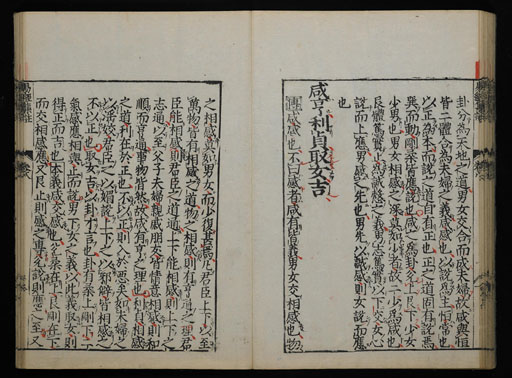 卦分為天地之道男女交合而成夫婦故咸與恒
皆二體合為夫婦之義咸感也以說為主恒常也
以正為本而說之道自有正也正之道固有說焉
巽而動剛柔皆應說也咸之為卦兌上艮下少女
少男也男女相感之深莫如少者故二少為咸也
艮體篤實止為誠慤之義男志篤實以下交女心
說而上應男感之先也男先以誠感則女說而應
也
咸亨利貞取女吉
傳咸感也不曰感者咸有皆義男女交相感也物
之相感莫如男女而少復甚焉凡君臣上下以至
萬物皆有相感之道物之相感則有亨通之理君
臣能相感則君臣之道通上下能相感則上下之
志通以至父子夫婦親戚朋友皆情意相感則和
順而亨通事物皆然故咸有亨之理也利貞相感
之道利在於正也不以正則入於惡矣如夫婦之
以淫姣君臣之以媚說上下之以邪僻皆相感之
不以正也取女吉以卦才言也卦有柔上剛下二
氣感應相與止而說男下女之義以此義取女則
得正而吉也本義咸交感也兌柔在上艮剛在下
而交相感應又艮止則感之專兌說則應之至又